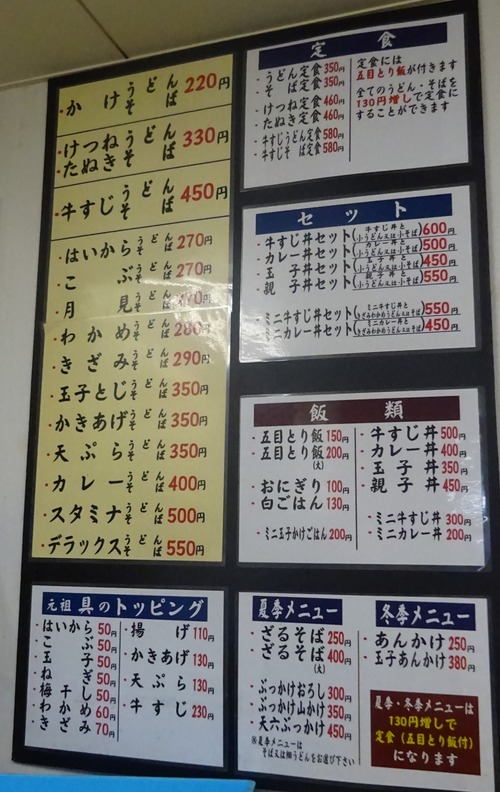 ・かけ うどん そば 220円
・けつね うどん
たぬき そば 330円
・牛すじ うどん そば 450円
・はいから うどん そば 270円
・こぶ うどん そば 270円
・月見 うどん そば 270円
・わかめ うどん そば 280円
・きざみ うどん そば 290円
・玉子とじ うどん そば 350円
・かきあげ うどん そば 350円
・天ぷら うどん そば 350円
・カレー うどん そば 400円
・スタミナ うどん そば 500円
・デラックス うどん そば 550円
定食
・うどん定食 350円
・そば定食 350円
・けつね定食 460円
・たぬき定食 460円
・牛すじうどん定食 580円
・牛すじそば定食 580円
定食には
五目とり飯が付きます
全てのうどん・そばを
130円増しで定食に
することができます
セット
・牛すじ丼セット(牛すじ丼と小うどん又は小そば) 600円
・カレー丼セット(カレー丼と小うどん又は小そば) 500円
・玉子丼セット(玉子丼と小うどん又は小そば) 450円
・親子丼セット(親子丼と小うどん又は小そば) 550円
・ミニ牛すじ丼セット(ミニ牛すじ丼ときざみわかめうどん又はそば) 550円
・ミニカレー丼セット(ミニカレー丼ときざみわかめうどん又はそば) 450円
飯類
・五目とり飯 150円
・五目とり飯(大) 200円
・おにぎり 100円
・白ごはん 130円
・ミニ玉子かけごはん 200円
・牛すじ丼 500円
・カレー丼 400円
・玉子丼 350円
・親子丼 450円
・ミニ牛すじ丼 300円
・ミニカレー丼 200円
元祖 具のトッピング
・はいから 50円
・こぶ 50円
・玉子 50円
・ねぎ 50円
・梅干し 50円
・わかめ 60円
・きざみ 70円
・揚げ 110円
・かきあげ 130円
・天ぷら 130円
・牛すじ 230円
夏季メニュー
・ざるそば 250円
・ざるそば(大) 400円
・ぶっかけおろし 300円
・ぶっかけ山かけ 350円
・天六ぶっかけ 450円
※夏季メニューは
そば又は細うどんをお選び下さい
冬季メニュー
・あんかけ 250円
・玉子あんかけ 380円
夏季・冬季メニューは
130円増しで
定食(五目とり飯付)
になります